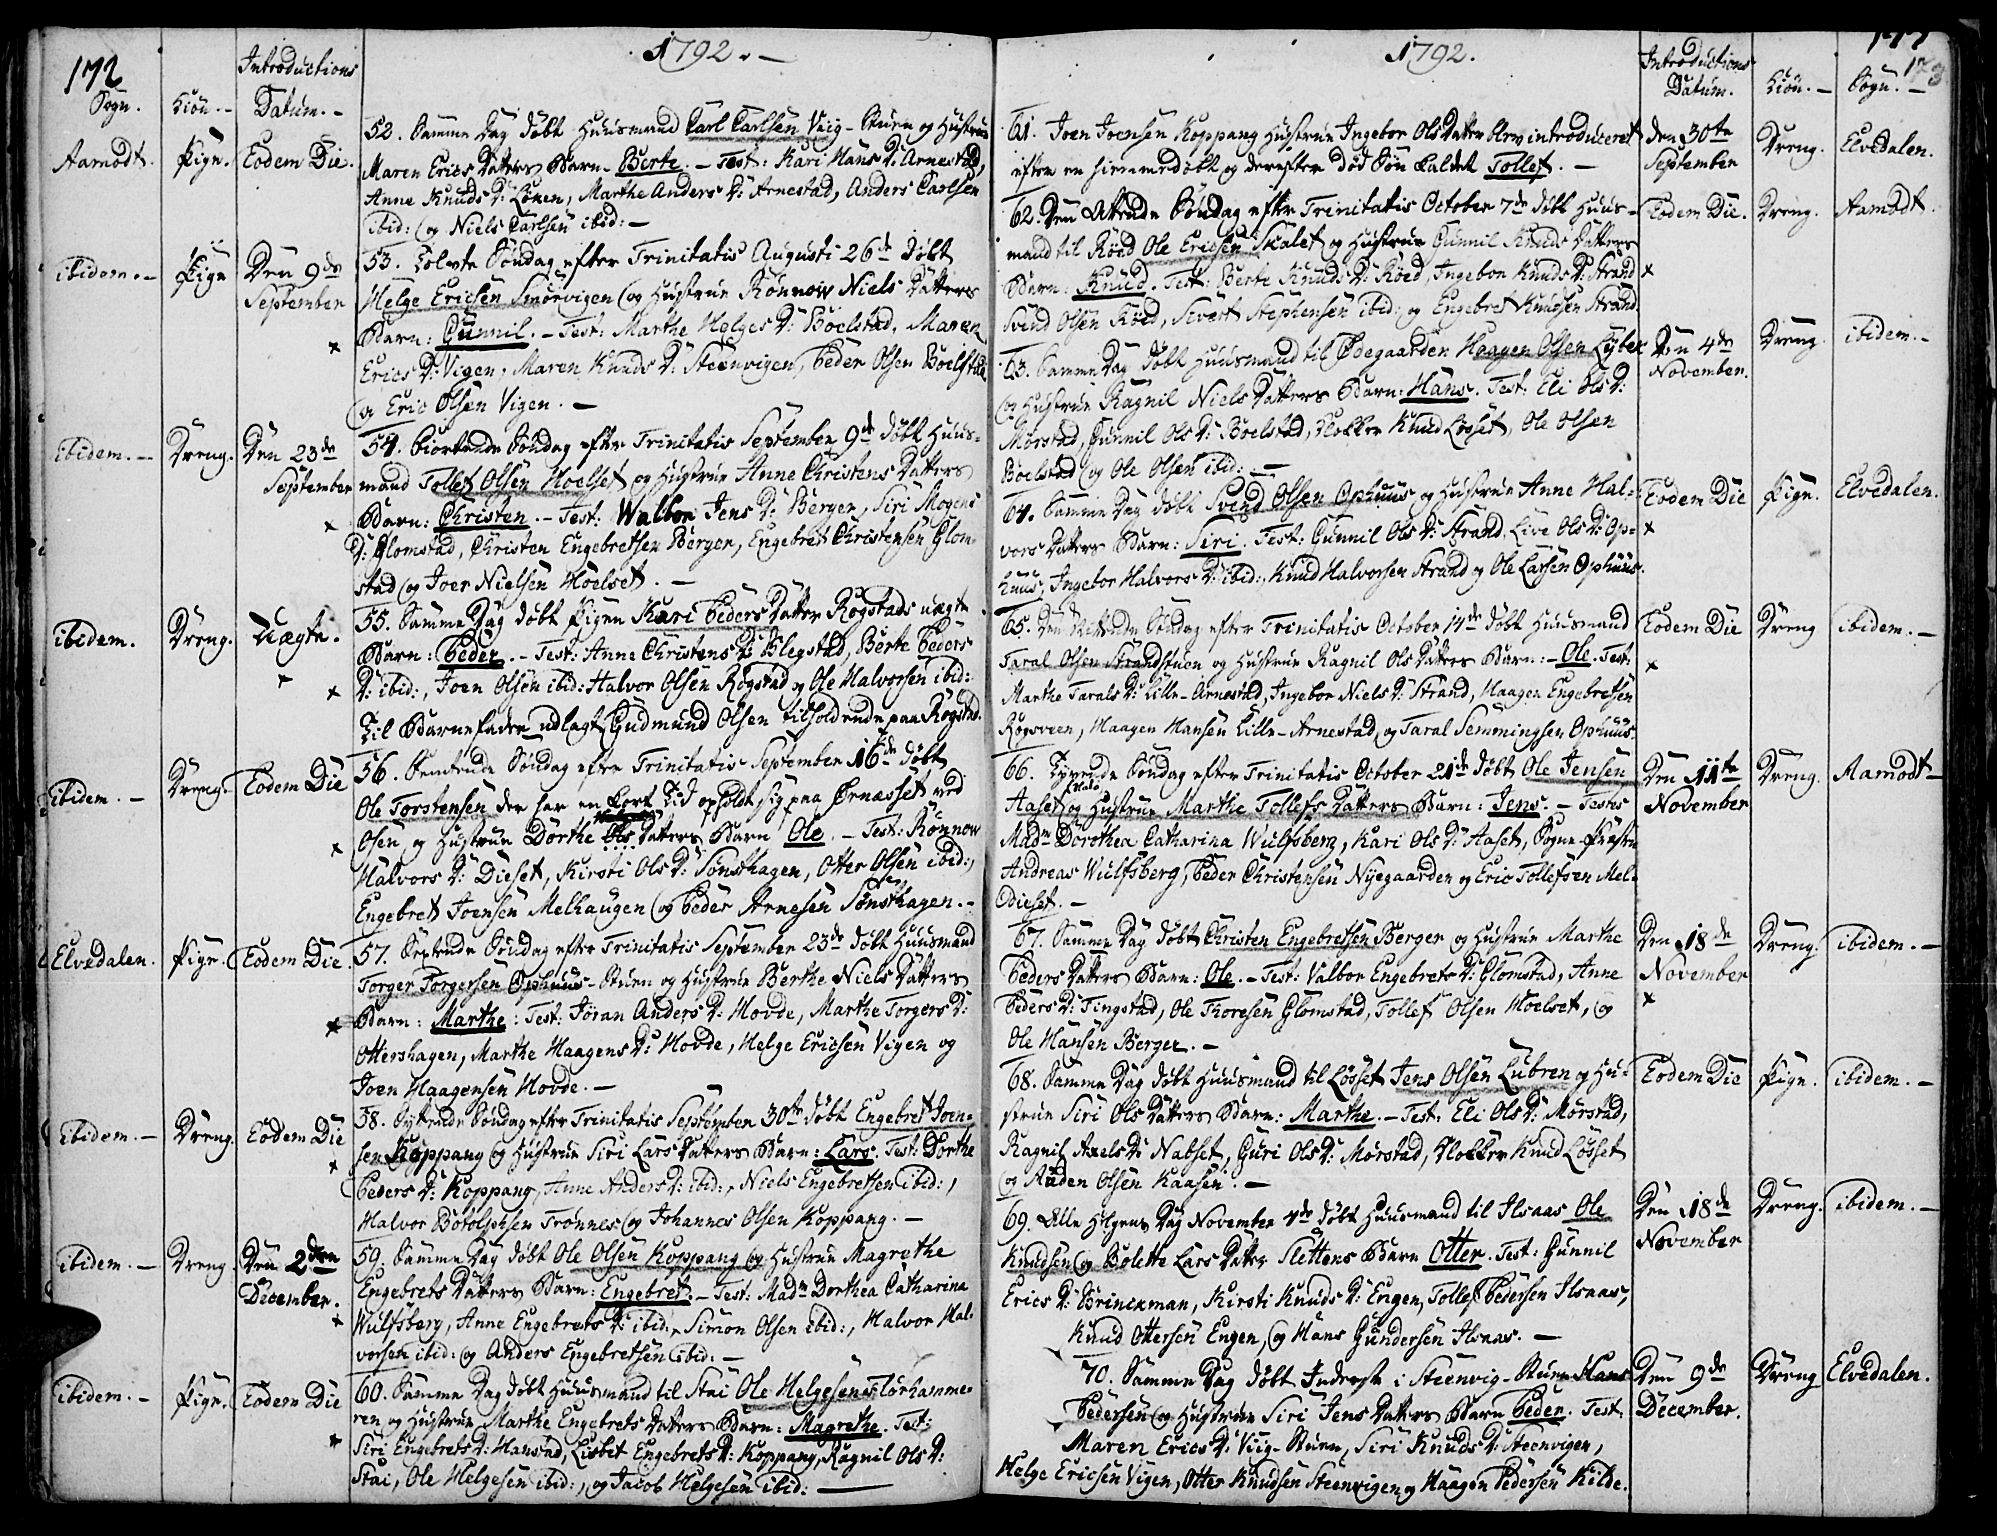 172
1792. —
Sogn. Kiön. — Introductions Datum. —
Aamodt. Pige. Eodem Die.
52. Samme Dag døbt Huusmand Carl Carlsen Viig-Stuen og Hustrue
Maren Erics Datters Barn: Berte. — Test: Kari Hans D: Arnestad,
Anne Knuds D: Lönen, Marthe Anders D: Arnestad, Anders Carlsen
ibid: og Niels Carlsen ibid: —
ibidem. — Pige Den 9de September
53. Tolvte Søndag efter Trinitatis Augusti 26de døbt
Helge Ericsen Smörvigen og Hustrue Rönnow Niels Datters
Barn: Gunnil. — Test: Marthe Helges D: Boelstad, Maren
Erics D: Vigen, Maren Knuds D: Steenvigen, Peder Olsen Boelstad
og Eric Olsen Vigen. —
ibidem. — Dreng. Den 23de September
54. Fiortende Søndag efter Trinitatis September 9de døbt Huus-
mand Tollef Olsen Hoelset og Hustrue Anne Christens Datters
Barn: Christen. — Test: Walbor Jens D: Berger, Siri Mogens
D: Glomstad, Christen Engebretsen Berger, Engebret Christensen Glom-
stad og Joer Nielsen Hoelset. —
ibidem. Dreng. Uægte.
55. Samme Dag døbt Pigen Kari Peders Datter Rogstads uægte
Barn: Peder. — Test: Anne Christens D: Blegstad, Berte Peders
D: ibid:, Joen Olsen ibid: Halvor Olsen Rogstad og Ole Halvorsen ibid:
Til Barnefader udlagt Gudmund Olsen tilholdende paa Rogstad.
ibidem. — Dreng. Eodem Die
56. Femtende Søndag efter Trinitatis September 16de døbt
Ole Torstensen der har en kort Tid opholdt sig paa Ornæsset ved
Osen, og Hustrue Dorthe Ols Datters Barn Ole. — Test: Rönnow
Halvors D: Dieset, Kirsti Ols D: Sönsthagen, Otter Olsen ibid:,
Engebret Joensen Melhaugen og Peder Arnesen Sönsthagen. —
Elvedalen. Pige. Eodem Die.
57. Sextende Søndag efter Trinitatis September 23de døbt Huusmand
Torger Torgersen Ophuus-Stuen og Hustrue Berthe Niels Datters
Barn: Marthe: Test: Jöran Anders D: Hovde, Marthe Torgers D:
Ottershagen, Marthe Haagens D: Hovde, Helge Ericsen Vigen og
Joen Haagensen Hovde. —
ibidem. — Dreng. Eodem Die
58. Syttende Søndag efter Trinitatis September 30te døbt Engebret Joen-
sen Koppang og Hustrue Siri Lars Datters Barn: Lars. Test: Dorthe
Peders D: Koppang, Anne Anders D: ibid:, Niels Engebretsen ibid:,
Halvor Botolphsen Trönnes og Johannes Olsen Koppang. —
ibidem. — Dreng. Den 2den December.
59. Samme Dag døbt Ole Olsen Koppang og Hustrue Magrethe
Engebrets Datters Barn: Engebret. — Test: Madm Dorthea Catharina
Wulfsberg, Anne Engebrets D: ibid:, Simon Olsen ibid:, Halvor Hal-
vorsen ibid: og Anders Engebretsen ibid: —
ibidem. — Pige. Eodem Die
60. Samme Dag døbt Huusmand til Stai Ole Helgesen Storhamme-
ren og Hustrue Marthe Engebrets Datters Barn: Magrethe. Test:
Siri Engebrets D: Hanstad, Lisbet Engebrets D: Koppang, Ragnil Ols D:
Stai, Ole Helgesen ibid:, og Jacob Helgesen ibid: —
173
1792.
Introductions Datum. Kiön. — Sogn. —
61. Joen Joensen Koppang Hustrue Ingebor Ols Datter blev introduceret
efter en hiemmedøbt og derefter død Søn kaldet Tollef. —
den 30te September Dreng. Elvedalen.
62. Den Attende Søndag efter Trinitatis October 7de døbt Huus-
mand til Röed Ole Ericsen Skalet og Hustrue Gunnil Knuds Datters
Barn: Knud. Test: Berte Knuds D: Röed, Ingebor Knuds D: Strand
Svend Olsen Röed, Sivert Stephensen ibid: og Engebret Knudsen Strand.
Eodem Die. Dreng. Aamodt.
63. Samme Dag døbt Huusmand til Ødegaarden Haagen Olsen Lyber
og Hustrue Ragnil Niels Datters Barn: Hans. Test: Eli Ols D:
Mörstad, Gunnil Ols D: Boelstad, Klokker Knud Losset, Ole Olsen
Boelstad og Ole Olsen ibid: —
Den 4de November. Dreng. ibidem. —
64. Samme Dag døbt Svend Olsen Ophuus og Hustrue Anne Hal-
vors Datters Barn: Siri. Test: Gunnil Ols D: Strand, Live Ols D: Op-
huus, Ingebor Halvors D: ibid:, Knud Halvorsen Strand og Ole Larsen Ophuus.
Eodem Die Pige. Elvedalen.
65. Den Nittende Søndag efter Trinitatis October 14de døbt Huusmand
Taral Olsen Strandstuen og Hustrue Ragnil Ols Datters Barn: — Ole. Test:
Marthe Tarals D: Lille-Arnestad, Ingebor Niels D: Strand, Haagen Engebretsen
Rögsveen, Haagen Hansen Lille-Arnestad, og Taral Semmingsen Ophuus.
Eodem Die Dreng ibidem. —
66. Tyvende Søndag efter Trinitatis October 21de døbt Ole Jensen
Aaset og Hustrue Marthe Tollefs Datters Barn: Jens. — Testes
Madm Dorothea Catharina Wulfsberg, Kari Ols D: Aaset, Sogne-Præsten
Andreas Wulfsberg, Peder Christensen Nyegaarden og Eric Tollefsen Mel-
Dieset. —
Den 11te November Dreng. Aamodt —
67. Samme Dag døbt Christen Engebretsen Berger og Hustrue Marthe
Peders Datters Barn: Ole. — Test: Valbor Engebrets D: Glomstad, Anne
Peders D: Tingstad, Ole Thoresen Glomstad, Tollef Olsen Hoelset, og
Ole Hansen Berger. —
Den 18de November Dreng. ibidem. —
68. Samme Dag døbt Huusmand til Lösset Jens Olsen Lubren og Hu-
strue Siri Ols Datters Barn: Marthe. — Test: Eli Ols D: Mörstad,
Ragnil Axels D: Nabset, Guri Ols D: Mörstad, Klokker Knud Lösset
og Auden Olsen Kaasen. —
Eodem Die Pige. ibidem. —
69. Alle Helgens Dag November 4de døbt Huusmand til Ilsaas Ole
Knudsen og Bolette Lars Datter Slettens Barn Otter. Test: Gunnil
Erics D: Brinckman, Kirsti Knuds D: Engen, Tollef Pedersen Ilsaas,
Knud Ottersen Engen, og Hans Gundersen Ilsaas. —
Den 18de November Dreng. ibidem. —
70. Samme Dag døbt Inderst i Steenvig-Stuen Hans
Pedersen og Hustrue Siri Jens Datters Barn Peder. Test:
Maren Erics D: Viig-Stuen, Siri Knuds D: Steenvigen,
Helge Ericsen Vigen, Otter Knudsen Steenvigen og Haagen Pedersen Kilde.
Den 9de December. Dreng Elvedalen.